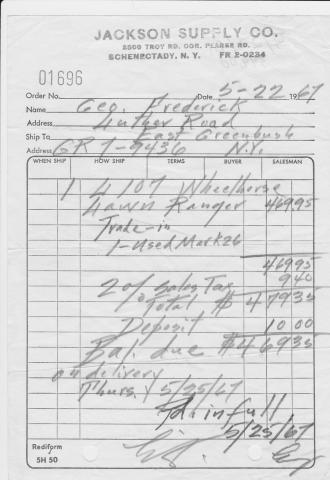 JACKSON SUPPLY CO.
2500 TROY RD. COR. PEARSE RD.
SCHENECTADY, N. Y. FR 2-0234
01696
Order No. Date 5-22 1967
Name Geo. Frederick
Address Luther Road
Ship To East Greenbush
Address GR 7-9436 N.Y.
WHEN SHIP HOW SHIP TERMS BUYER SALESMAN
1 4107 Wheelhorse
Lawn Ranger 46995
Trade-in
1-Used Mark 26
46995
2% Sales Tax 940
Total $ 47935
Deposit 1000
Bal. due $46935
on delivery
Thurs. 5/25/67
Pd. in full
5/25/67
Rediform
5H 50